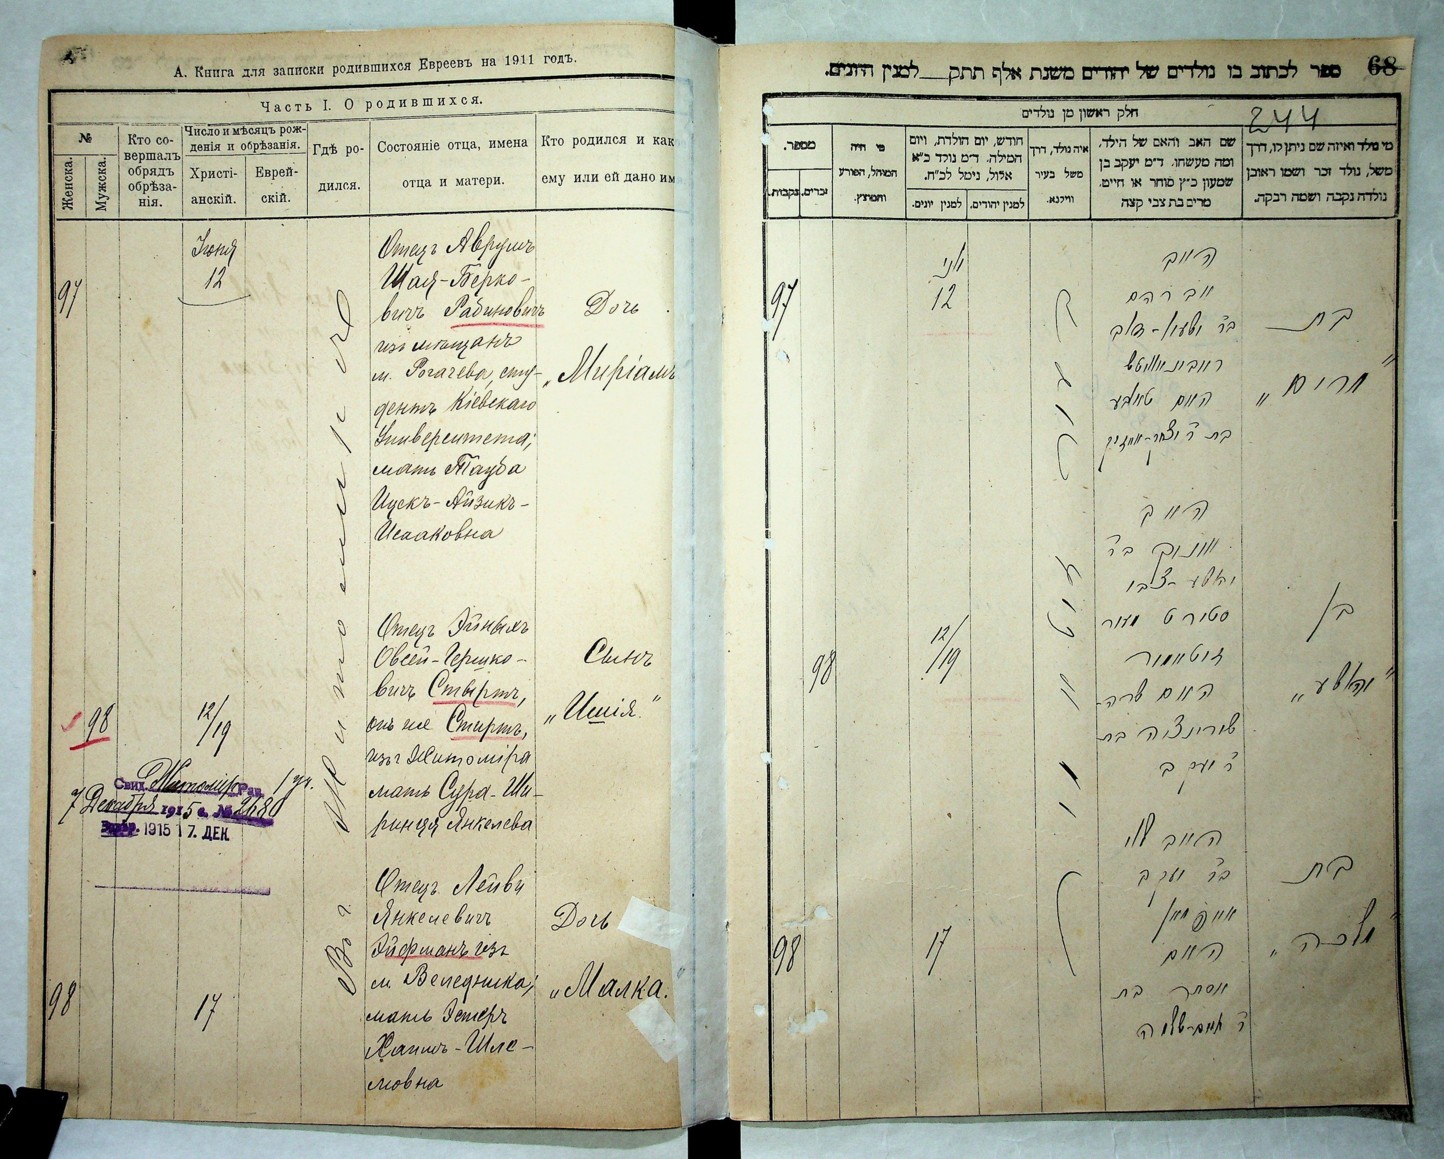 А. Книга для записки родившихся Евреевъ на 1911 годъ.
Часть I. О родившихся.
№
Женска.
Мужска.
Кто со-
вершалъ
обрядъ
обрѣза-
нія.
Число и мѣсяцъ рож-
денія и обрѣзанія.
Христі-
анскій.
Еврей-
скій.
Гдѣ ро-
дился.
Состояніе отца, имена
отца и матери.
Кто родился и как
ему или ей дано им
Іюня
12
97
Отецъ Аврумъ
Шая-Берко-
вичъ Рабиновичъ
изъ мѣщанъ
м. Рогачева, сту-
дентъ Кіевскаго
Университета;
мать Тауба
Ицекъ-Айзикъ-
Исааковна
Дочь
„Миріамъ
Въ г. Житомирѣ
98
12/19
Отецъ Эйныхъ
Овсей-Гершко-
вичъ Ствиртъ,
онъ же Стиртъ,
изъ Житоміра
мать Сура-Ши-
ринця Янкелева
Сынъ
„Ишія“
Свид. Житомір Рав.
7 Декабря 1915 г. № 2680
1915 17. ДЕК
98
17
Отецъ Лейви
Янкелевичъ
Эйфманъ изъ
м. Веледника;
мать Эстеръ
Хаимъ-Шле-
мовна
Дочь
„Малка.“
ספר לכתוב בו נולדים של יהודים משנת אלף תתק___למנין היונים.
68
חלק ראשון מן נולדים
244
מספר.
זכרים.
נקבות.
מי היה
המוהל, הפורע
והמוצץ.
חודש, יום הולדת, ויום
המילה. ד״מ נולד כ״א
אלול, נימל לכ״ח.
למנין יונים.
למנין יהודים.
איה נולד, דרך
משל בעיר
ווילנא.
שם האב והאם של הילד,
ומה מעשהו. ד״מ יעקב בן
שמעון כ״ץ סוחר או חייט.
מרים בת צבי קצה
מי נולד ואיזה שם ניתן לו, דרך
משל, נולד זכר ושמו ראובן
נולדה נקבה ושמה רבקה.
97
יוני
12
האב
אברהם
בר ישעי׳-דוב
ראבינאוויטש
האם טויבע
בת ר׳ יצחק-אייזיק
בת
„מרים“
זיטאמיר
98
12/19
האב
בר
האם שרה-
בת
ר׳ יעקב
בן
98
17
האב לוי
בר יעקב
אייפמאן
האם
אסתר בת
ר׳ חיים-שלמה
בת
„מלכה“